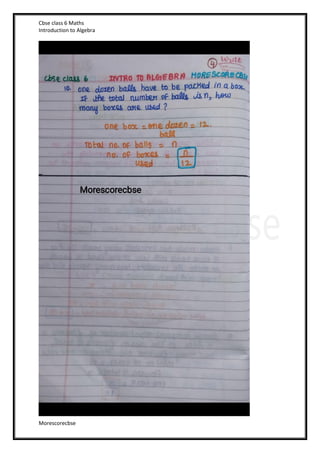 Cbse class 6 Maths
Introduction to Algebra
4
cbse class 6 INTRO TO ALGEBRA MORESCORECBSE
10. one dozen balls have to be packed in a box
If the total number of balls is n, how
many boxes are used?
one box = one dozen = 12
ball
Total no. of balls = n
no. of boxes = n
used 12
Morescorecbse
Morescorecbse